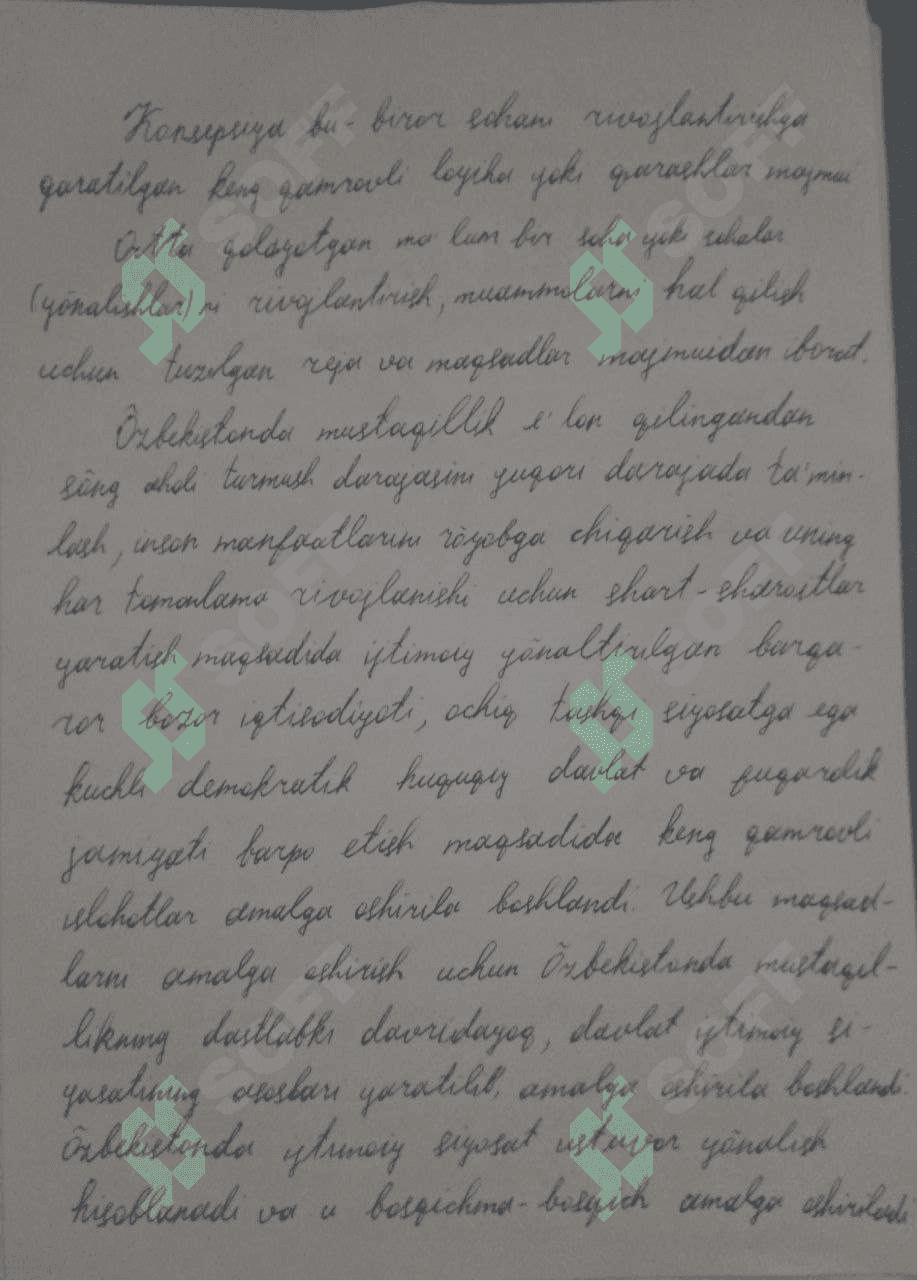 Konsepsiya bu - biror sohani rivojlantirishga
qaratilgan keng qamrovli loyiha yoki qarashlar majmui
Ortta qolayotgan ma'lum bir soha yoki sohalar
(yõnalishlar) ni rivojlantirish, muammolarni hal qilish
uchun tuzilgan reja va maqsadlar majmuidan iborat.
Õzbekistonda mustaqillik e'lon qilingandan
sõng aholi turmush darajasini yuqori darajada ta'min-
lash, inson manfaatlarini rõyobga chiqarish va uning
har tomonlama rivojlanishi uchun shart-sharoitlar
yaratish maqsadida ijtimoiy yõnaltirilgan barqa-
ror bozor iqtisodiyoti, ochiq tashqi siyosatga ega
kuchli demokratik huquqiy davlat va fuqarolik
jamiyati barpo etish maqsadida keng qamrovli
islohotlar amalga oshirila boshlandi. Ushbu maqsad-
larni amalga oshirish uchun Õzbekistonda mustaqil-
likning dastlabki davridayoq, davlat ijtimoiy si-
yosatining asoslari yaratilib, amalga oshirila boshlandi.
Õzbekistonda ijtimoiy siyosat ustuvor yõnalish
hisoblanadi va u bosqichma-bosqich amalga oshiriladi
SOFF
SOFF
SOFF
SOFF
SOFF
SOFF